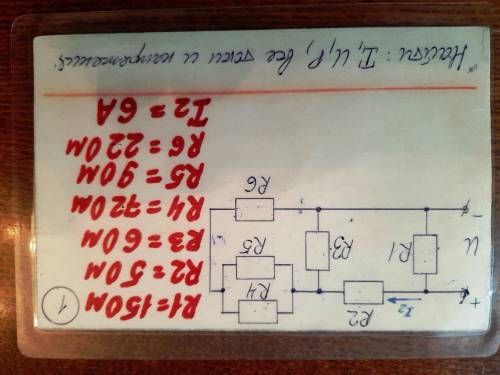 1
R1=15Ом
R2=5Ом
R3=6Ом
R4=72Ом
R5=9Ом
R6=22Ом
I2=6А
+
I2
R2
R4
R5
R1
R3
U
-
R6
Найти: I, U, P, все токи и напряжения.